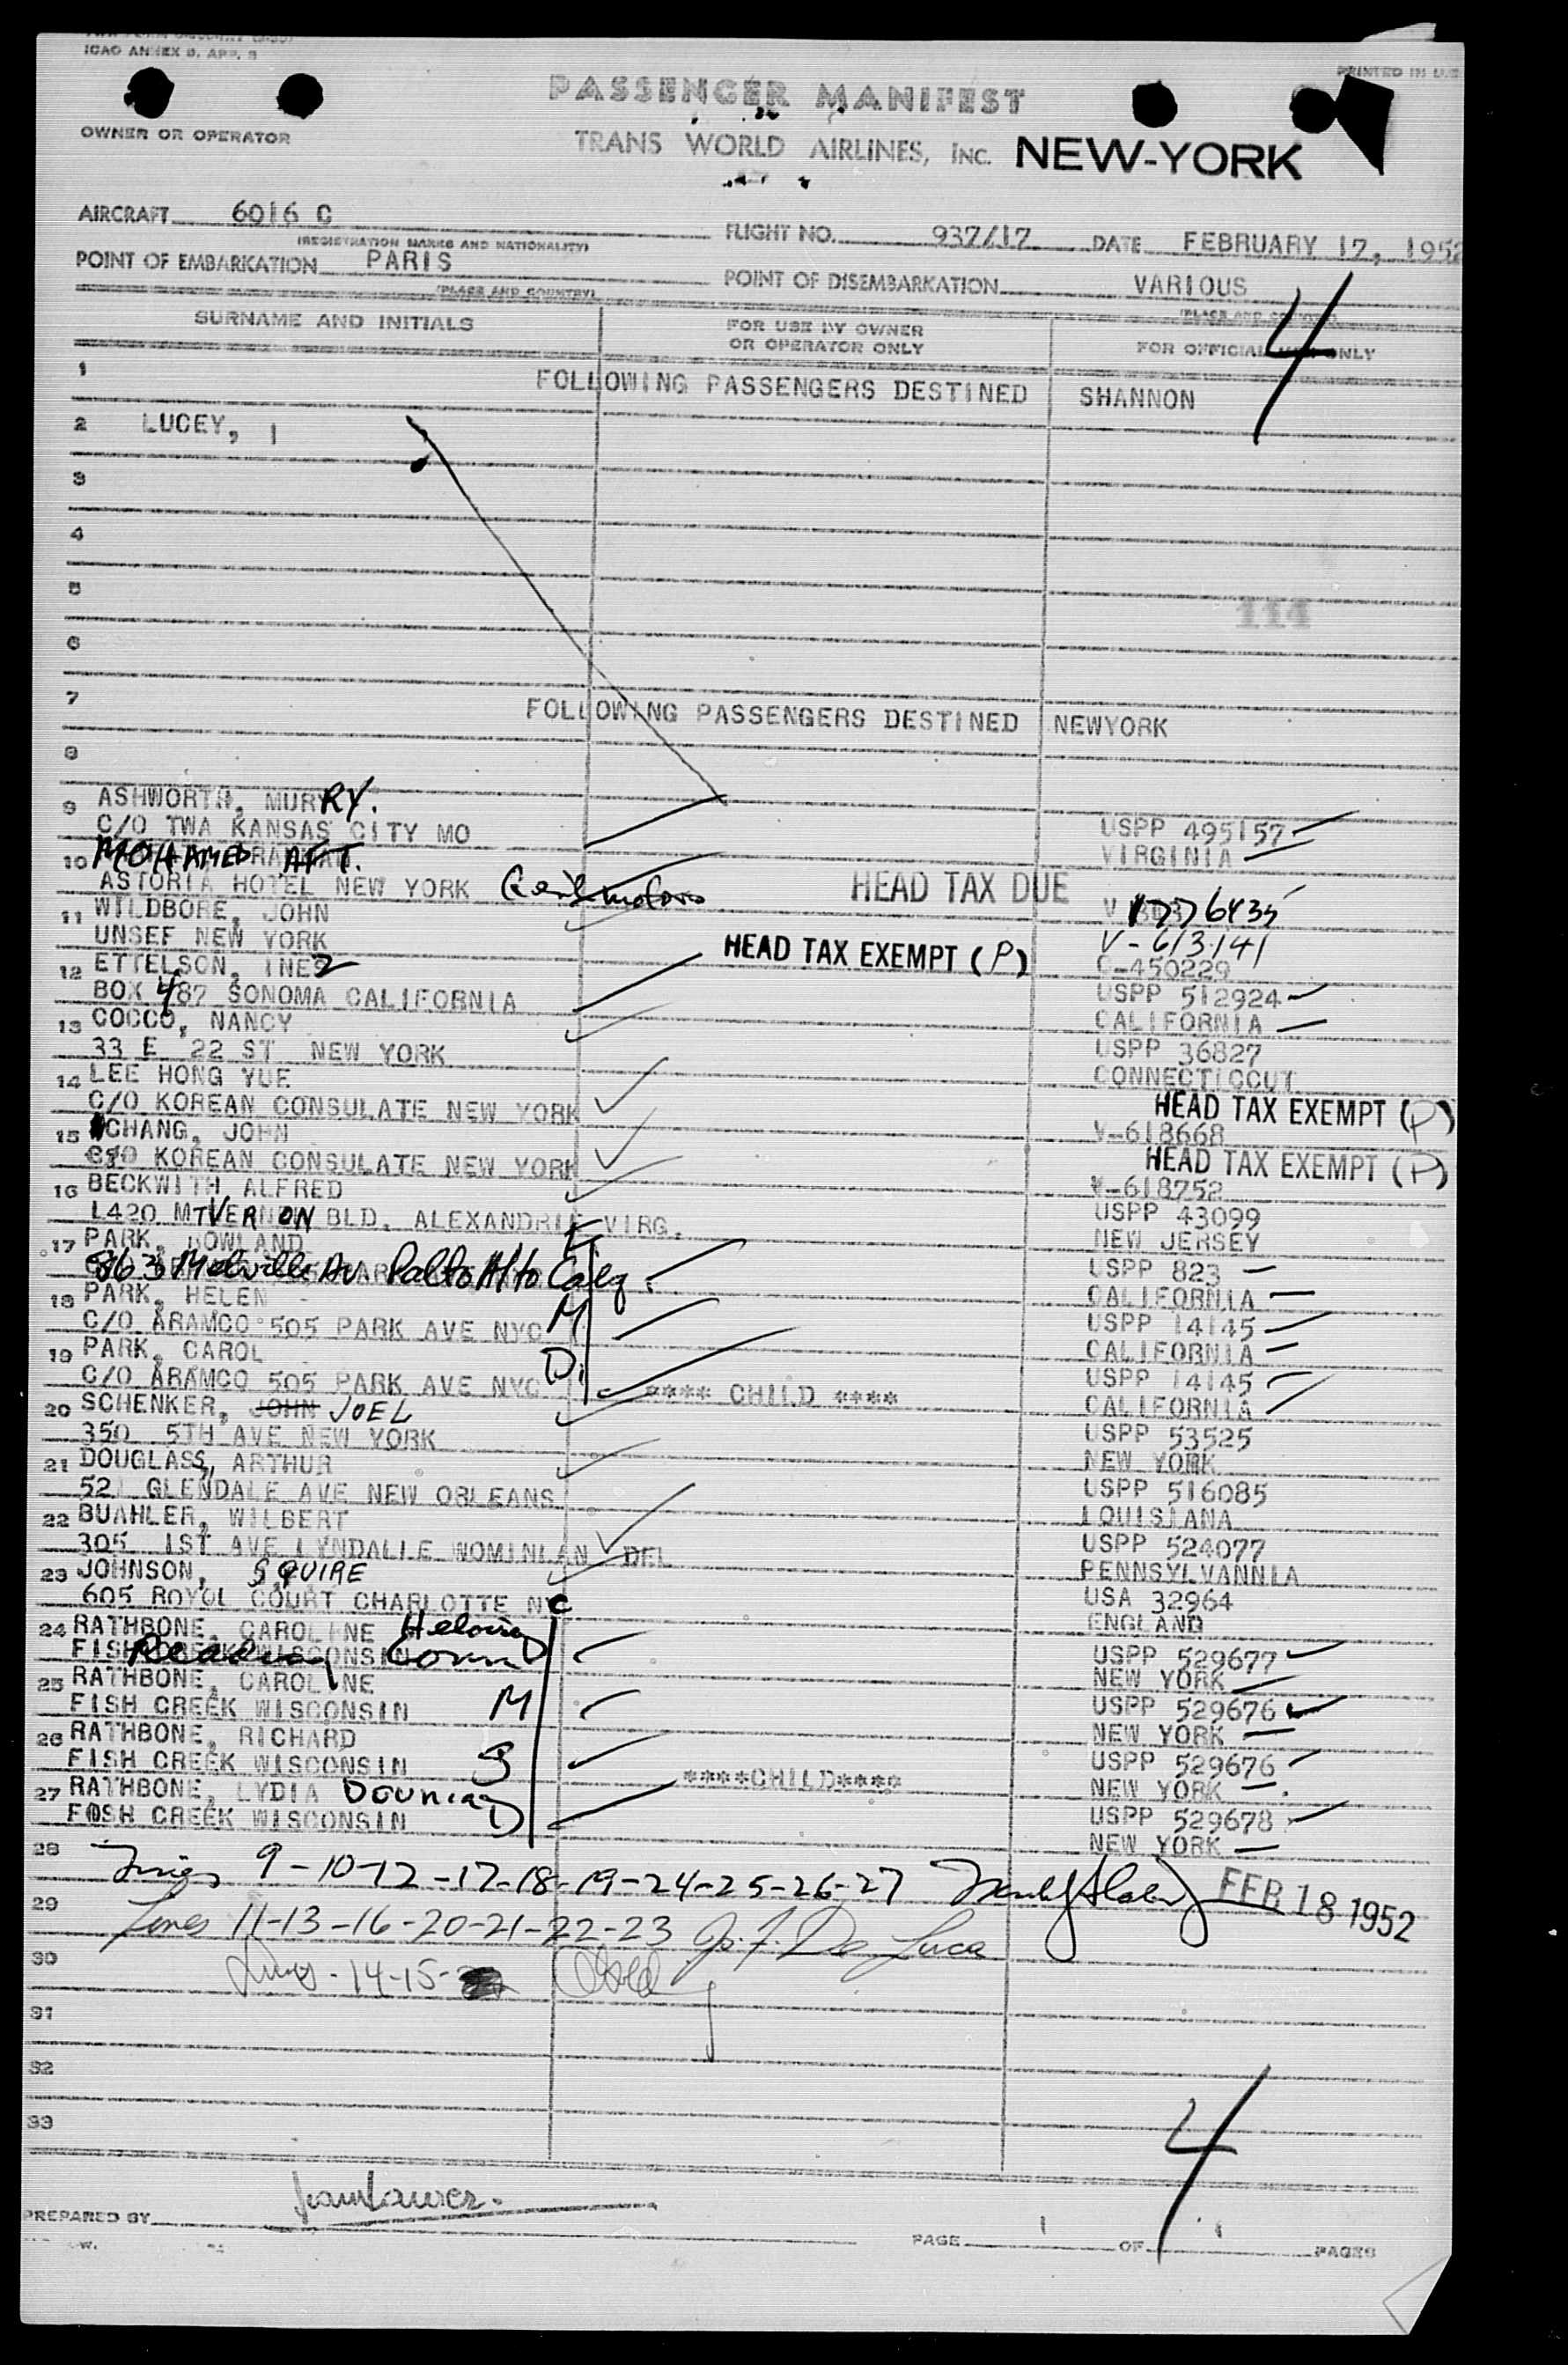 ICAO ANNEX 9, APP. 3
PRINTED IN U.S.
PASSENGER MANIFEST
OWNER OR OPERATOR
TRANS WORLD AIRLINES, INC. NEW-YORK
AIRCRAFT 6016 C
(REGISTRATION MARKS AND NATIONALITY)
FLIGHT NO. 937/17 DATE FEBRUARY 17, 1952
POINT OF EMBARKATION PARIS
(PLACE AND COUNTRY)
POINT OF DISEMBARKATION VARIOUS
(PLACE AND COUNTRY)
4
SURNAME AND INITIALS
FOR USE BY OWNER OR OPERATOR ONLY
FOR OFFICIAL USE ONLY
1 FOLLOWING PASSENGERS DESTINED SHANNON
2 LUCEY, I
3
4
5
114
6
7 FOLLOWING PASSENGERS DESTINED NEWYORK
8
9 ASHWORTH, MURRY.
C/O TWA KANSAS CITY MO USPP 495157
VIRGINIA
10 MOHAMED AFT.
ASTORIA HOTEL NEW YORK HEAD TAX DUE
V 1776435
11 WILDBORE, JOHN
UNSEF NEW YORK HEAD TAX EXEMPT (P) V-613141
C-450229
12 ETTELSON, INEZ
BOX 487 SONOMA CALIFORNIA USPP 512924
CALIFORNIA
13 COCCO, NANCY
33 E 22 ST NEW YORK USPP 36827
CONNECTICCUT
14 LEE HONG YUE
C/O KOREAN CONSULATE NEW YORK HEAD TAX EXEMPT (P)
V-618668
15 CHANG, JOHN
C/O KOREAN CONSULATE NEW YORK HEAD TAX EXEMPT (P)
V-618752
16 BECKWITH ALFRED
L420 MTVERNON BLD. ALEXANDRIA VIRG. USPP 43099
NEW JERSEY
17 PARK, ROWLAND F
863 Melville Av Palto Alto Calif. USPP 823
CALIFORNIA
18 PARK, HELEN M
C/O ARAMCO 505 PARK AVE NYC USPP 14145
CALIFORNIA
19 PARK, CAROL D
C/O ARAMCO 505 PARK AVE NYC **** CHILD **** USPP 14145
CALIFORNIA
20 SCHENKER, JOHN JOEL
350 5TH AVE NEW YORK USPP 53525
NEW YORK
21 DOUGLASS, ARTHUR
52 GLENDALE AVE NEW ORLEANS USPP 516085
LOUISIANA
22 BUAHLER, WILBERT
305 1ST AVE LYNDALLE WOMINLAN DEL USPP 524077
PENNSYLVANNIA
23 JOHNSON, SQUIRE
605 ROYOL COURT CHARLOTTE NC USA 32964
ENGLAND
24 RATHBONE, CAROLINE D
FISH CREEK WISCONSIN Conn USPP 529677
NEW YORK
25 RATHBONE, CAROLINE
FISH CREEK WISCONSIN M USPP 529676
NEW YORK
26 RATHBONE, RICHARD
FISH CREEK WISCONSIN S ****CHILD**** USPP 529676
NEW YORK
27 RATHBONE, LYDIA
FOSH CREEK WISCONSIN D USPP 529678
NEW YORK
28 Lines 9-10-12-17-18-19-24-25-26-27 FEB 18 1952
29 Lines 11-13-16-20-21-22-23 Jo. F. De Luca
30 Lines - 14-15-
31
32
33
4
PREPARED BY
PAGE 1 OF 1 PAGES